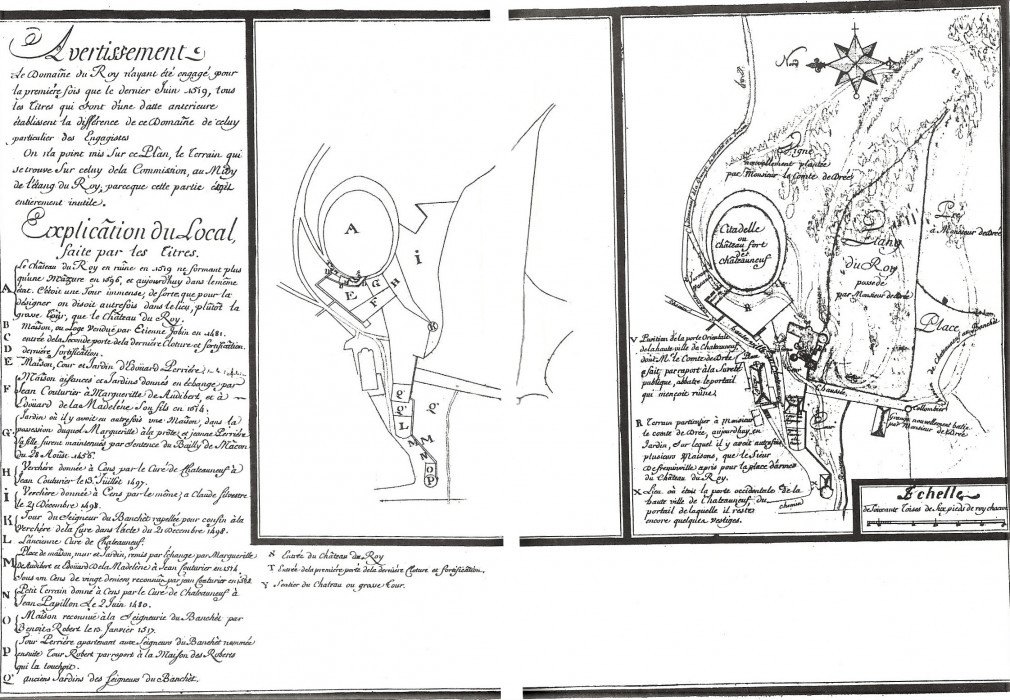 Avertissement
Le Domaine du Roy n'ayant été engagé pour
la premiere fois que le dernier Juin 1519, tous
les Titres qui sont d'une datte anterieure
établissent la différence de ce Domaine de celuy
particulier des Engagistes
On n'a point mis sur ce Plan, le Terrain qui
se trouve sur celuy de la Commission, au Midy
de l'étang du Roy, parceque cette partie étoit
entierement inutile.
Explication du Local,
faite par les Titres.
A Le Château du Roy en ruine en 1519 ne formant plus
qu'une Mazure en 1596, et aujourdhuy dans le même
état. C'étoit une Tour immense; de sorte que pour la
désigner on disoit autrefois dans le lieu, plûtôt la
grosse Tour, que le Château du Roy.
B Maison, ou Loge Vendue par Etienne Jobin en 1481.
C entrée de la seconde porte de la derniere Cloture et fortification.
D derniere fortification.
E Maison, Cour et Jardin d'Edouard Perriere
F Maison aisances et Jardins donnés en échange par
Jean Couturier à Marguerite de Audibert, et à
Edouard de la Madeleine son fils en 1574.
G Jardin où il y avoit en autrefois une Maison, dans la
possession duquel Marguerite à la prête, et jeanne Perriere
sa fille furent maintenues par Sentence du Bailly de Macon
du 28 Août 1456.
H Verchere donnée à Cens par le Curé de Chateauneuf à
Jean Couturier le 13 Juillet 1497.
I Verchere donnée à Cens par le même, a Claude Silvestre
le 21 Decembre 1498.
K Tour du Seigneur du Banchet rapellée pour confin à la
Verchere de la Cure dans l'acte du 21 Decembre 1498.
L L'ancienne Cure de Chateauneuf.
M Place de maison, mur et Jardin, remis par Echange par Marguerite
de Audibert et Edouard de la Madeleine à Jean Couturier en 1574
sous un Cens de vingt deniers, reconnu par jean Couturier en
N Petit Terrain donné à Cens par le Curé de Chateauneuf à
Jean Papillon le 2 Juin 1480.
O Maison reconnue à la Seigneurie du Banchet par
Benoit a Robert le 13 Janvier 1517.
P Tour Perriere apartenant aux Seigneurs du Banchet nommée
ensuite Tour Robert par raport à la Maison des Roberts
qui la touchoit.
Q anciens Jardins des Seigneurs du Banchet.
S Entrée du Château du Roy
T Entrée de la premiere porte de la derniere Cloture et fortification.
Y Sentier du Chateau ou grosse Tour.
A
B
D
E
G
F
H
i
K
Q
Q
L
Q
M
M
N
O
P
Nord
Vigne
nouvellement plantée
par Monsieur le Comte de Drée
Citadelle
ou
château fort
de
châteauneuf
R
Etang
du Roy
possedé
par Monsieur de Drée
Pré
à Monsieur de Drée
Place
Chaussée
Colombier
Grange nouvellement batie
par Monsieur de Drée
V Position de la porte Orientale
de la haute ville de Chateauneuf,
dont M. le Comte de Drée
a fait, par raport à la Sureté
publique, abbatre le portail
qui menaçoit ruine.
R Terrain partinfier à Monsieur
le comte de Drée, aujourdhuy en
Jardin, sur lequel il y avoit autrefois
plusieurs Maisons, que le Sieur
de Feminville a pris pour la place d'armes
du Château du Roy.
X Lieu où étoit la porte occidentale de la
haute ville de Chateauneuf, du
portail de laquelle il reste
encore quelques vestiges.
chemin
Echelle
de soixante Toises de Six pieds de roy chacune